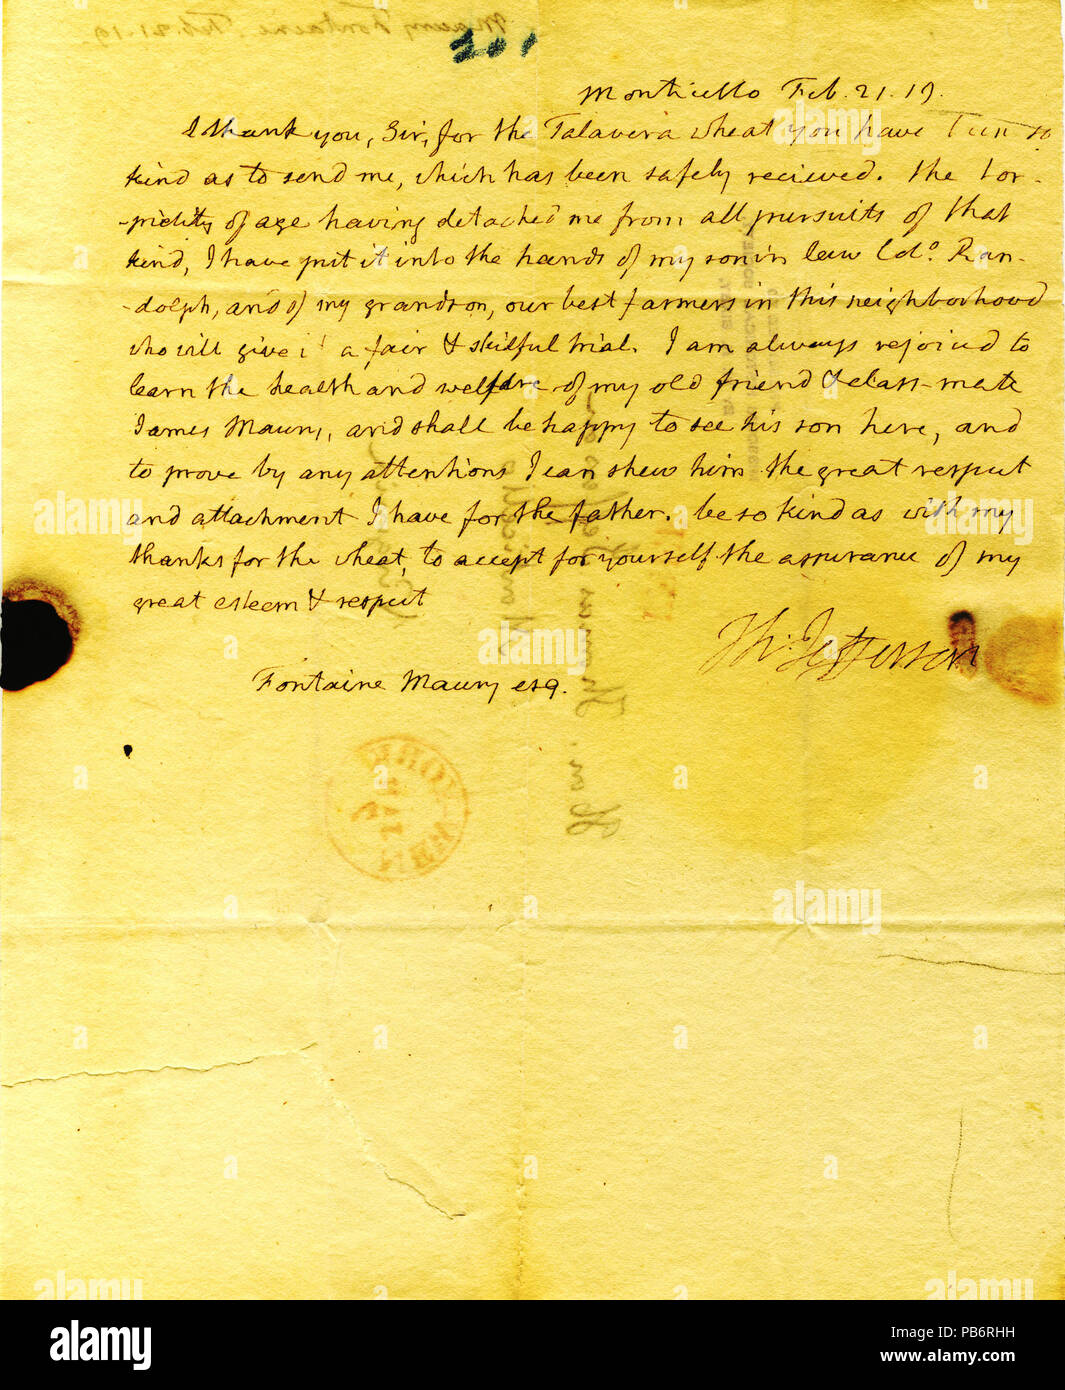 201
Monticello Feb. 21. 19.
I thank you, Sir, for the Talavera wheat you have been so
kind as to send me, which has been safely recieved. the tor-
-pidity of age having detached me from all pursuits of that
kind, I have put it into the hands of my son in law Colo. Ran-
-dolph, and of my grandson, our best farmers in this neighborhood
who will give it a fair & skilful trial. I am always rejoiced to
learn the health and welfare of my old friend & class-mate
James Maury, and shall be happy to see his son here, and
to prove by any attentions I can shew him the great respect
and attachment I have for the father. be so kind as with my
thanks for the wheat, to accept for yourself the assurance of my
great esteem & respect
Th: Jefferson
Fontaine Maury esq.
Maury Fontaine. Feb. 21. 19.
alamy
Image ID: PB6RHH
www.alamy.com